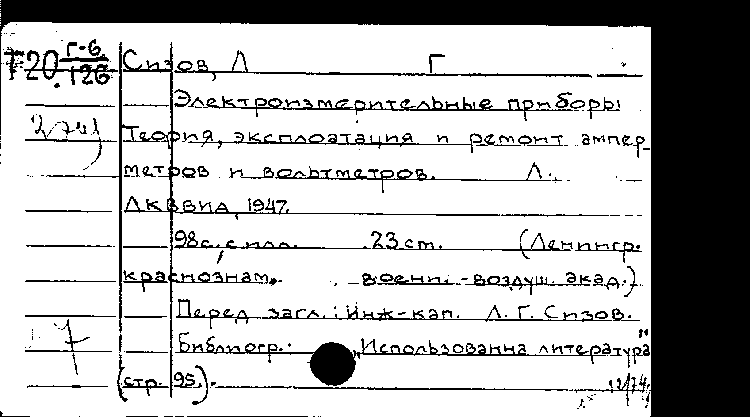 Т20 Г-6 Сизов, Л Г
126
Электроизмерительные приборы
Теория, эксплоатация и ремонт ампер-
метров и вольтметров. Л.,
ЛКВВИА, 1947.
98с., с илл. 23 см. (Ленингр.
краснознам. военн.-воздуш. акад.)
Перед загл.: Инж-кап. Л. Г. Сизов.
Библиогр.: „Использованна литература"
(стр. 95).
7